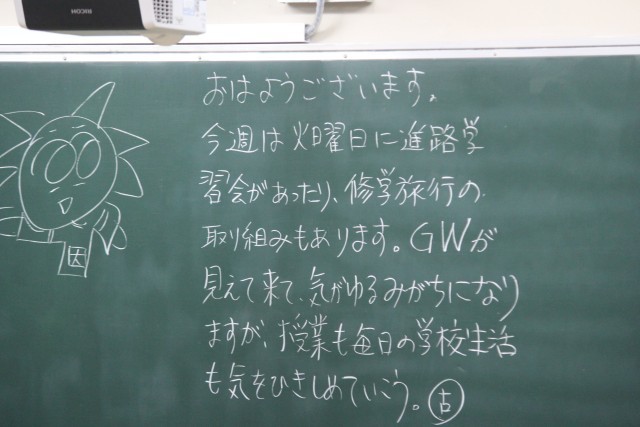 RICOH
おはようございます。
今週は火曜日に進路学
習会があったり、修学旅行の
取り組みもあります。GWが
見えて来て、気がゆるみがちになり
ますが、授業も毎日の学校生活
も気をひきしめていこう。古
因